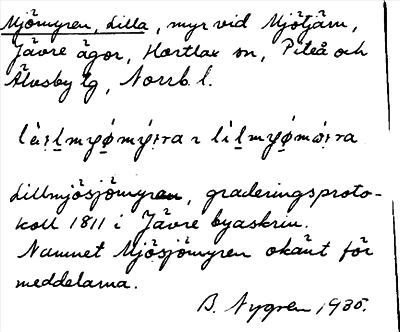 Mjömyren, Lilla, myr vid Mjötjärn,
Jävre ägor, Hortlax sn, Piteå och
Älvsby tg, Norrb. l.
Lillmjösjömyren, graderingsproto-
koll 1811 i Jävre byaskrin.
Namnet Mjösjömyren okänt för
meddelarna.
B. Nygren 1935.